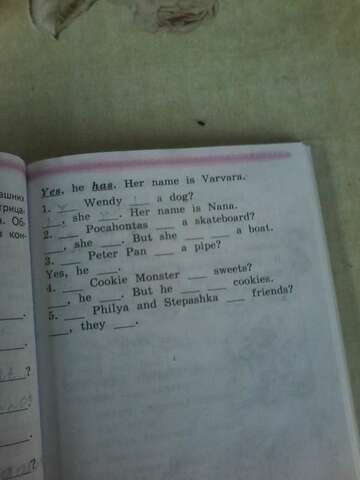 Yes, he has. Her name is Varvara.
1. ___ Wendy ___ a dog?
___, she ___. Her name is Nana.
2. ___ Pocahontas ___ a skateboard?
___, she ___. But she ___ ___ a boat.
3. ___ Peter Pan ___ a pipe?
Yes, he ___.
4. ___ Cookie Monster ___ sweets?
___, he ___. But he ___ ___ cookies.
5. ___ Philya and Stepashka ___ friends?
___, they ___.